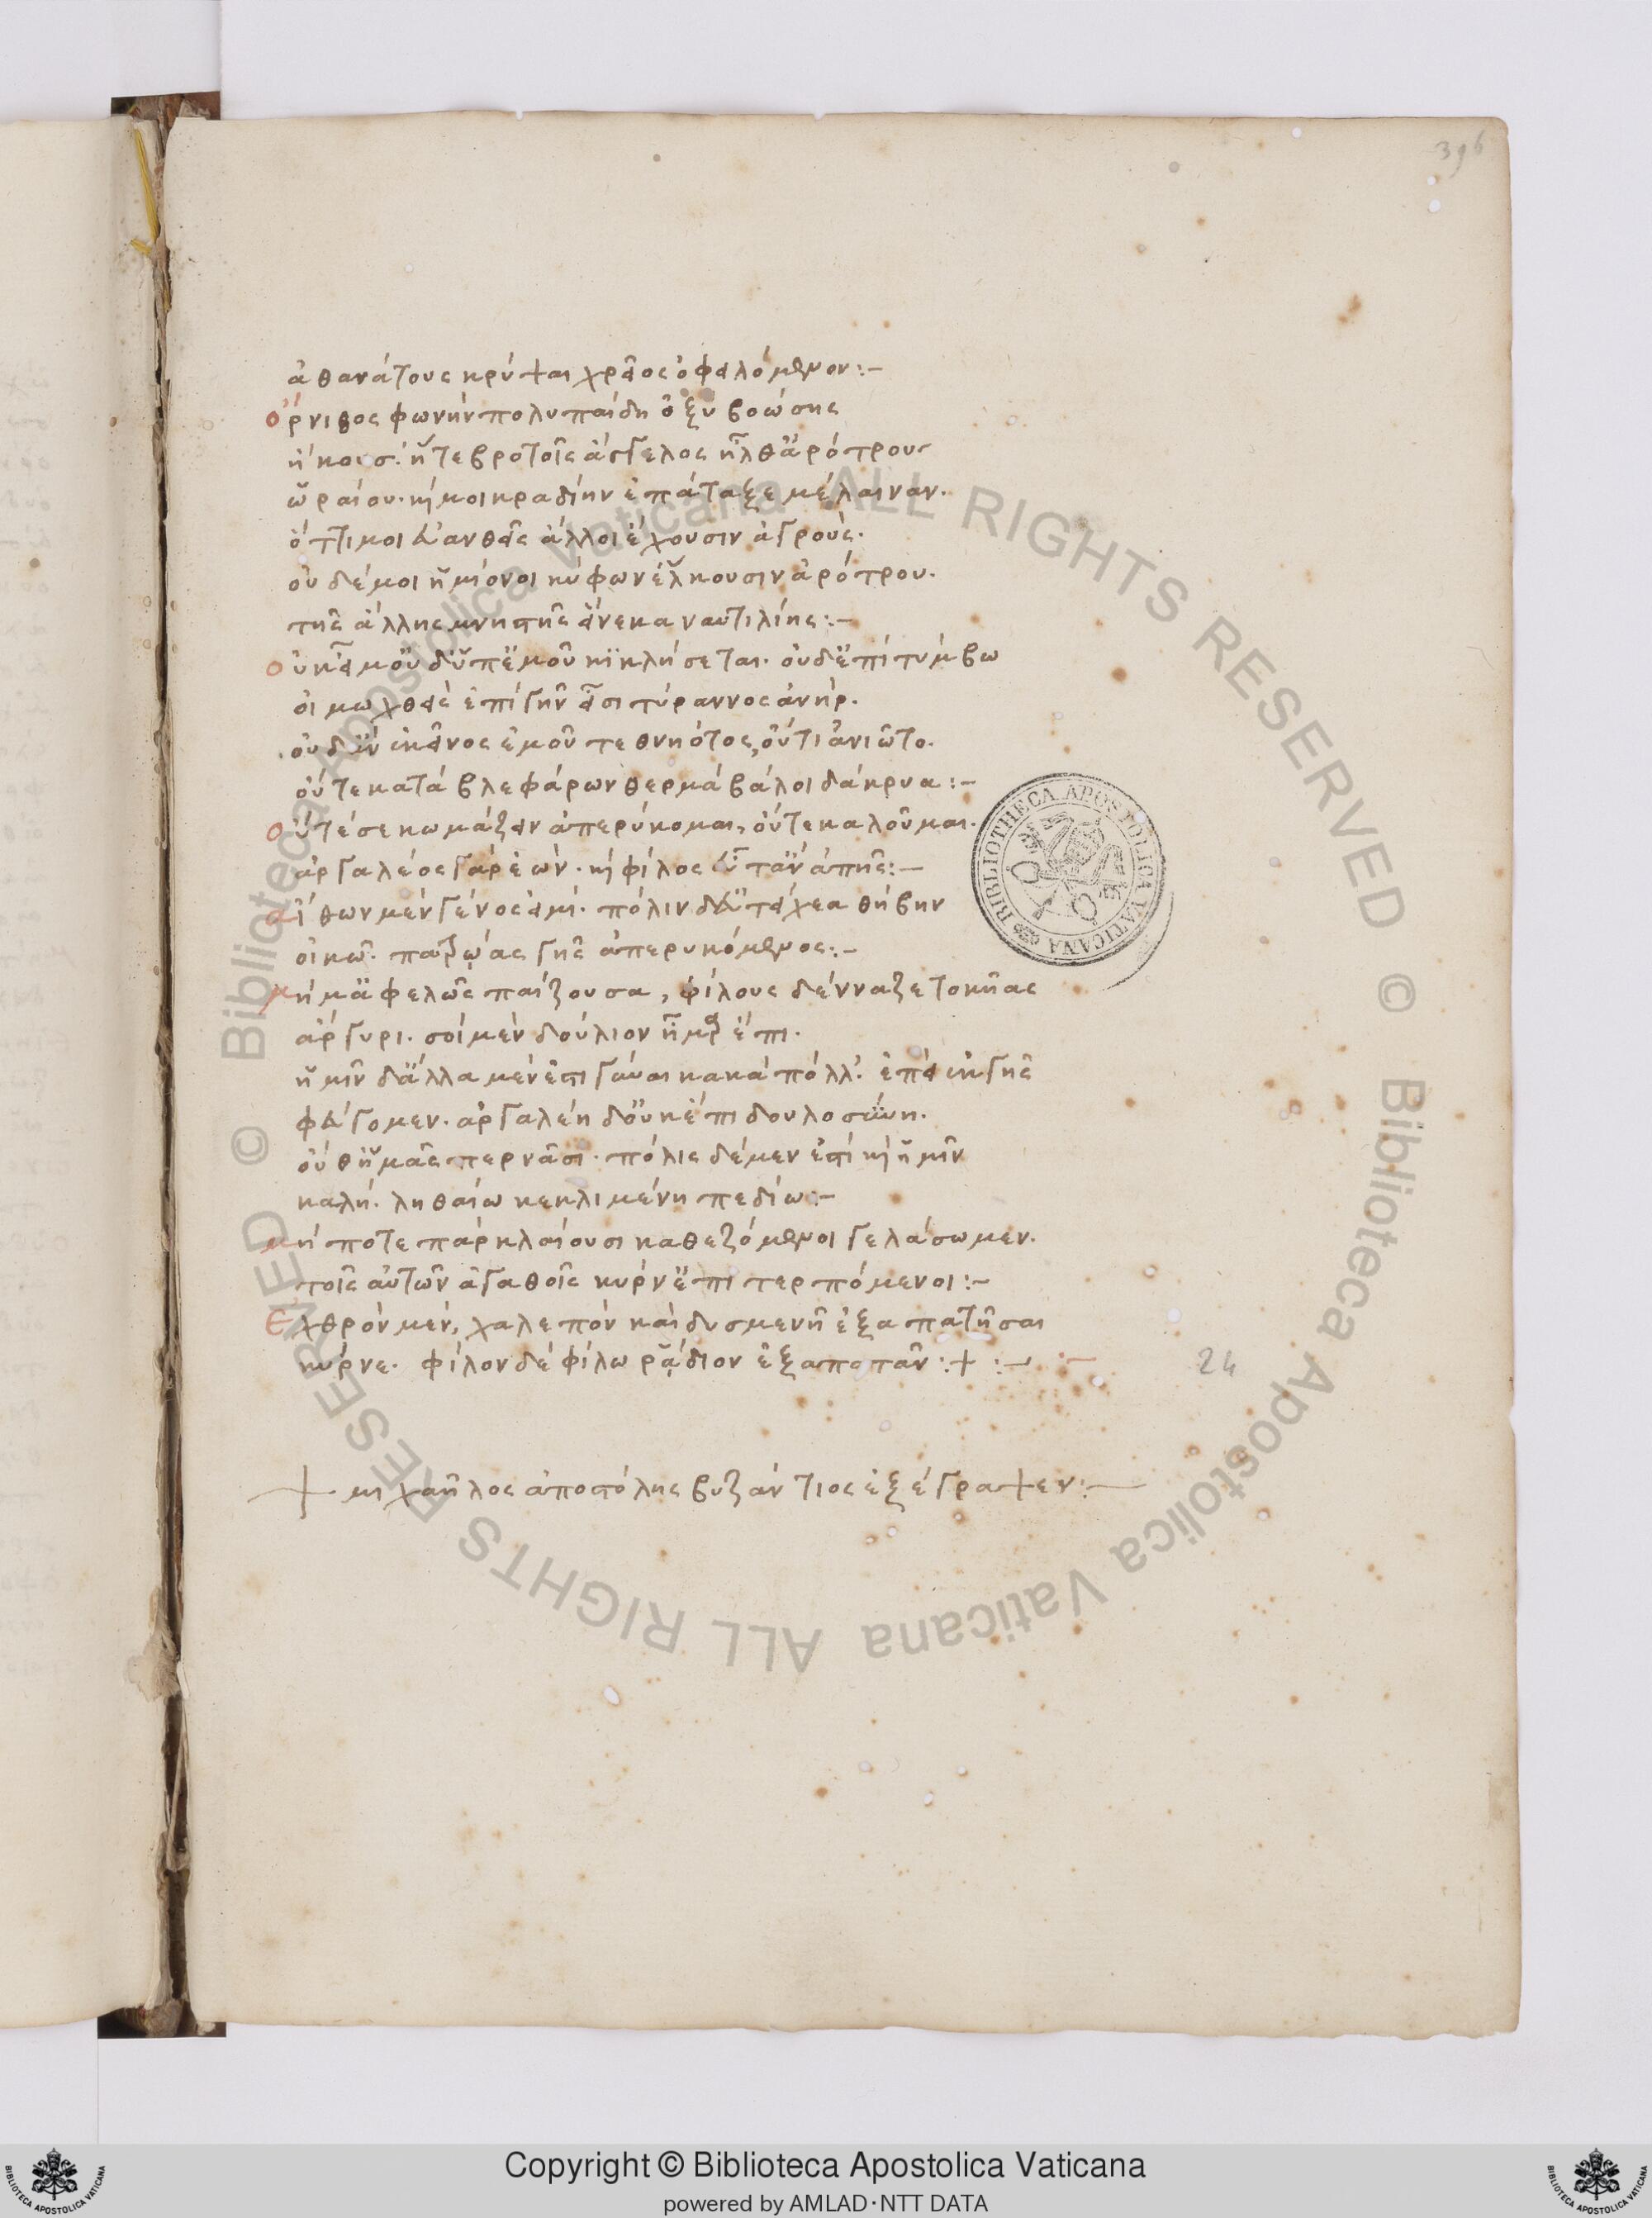 396
ἀθανάτους κρύψαι χρεῖος ὀφειλόμενον:-
Ὄρνιθος φωνὴν πολυπαίδη ὀξὺ βοώσης
ἤκουσ'. ἥτε βροτοῖς ἄγγελος ἦλθ' ἀρότρους
ὡραίου. καί μοι κραδίην ἐπάταξε μέλαιναν.
ὅττι μοι εὐανθεῖς ἄλλοι ἔχουσιν ἀγρούς.
οὐδέ μοι ἡμίονοι κύφων' ἕλκουσιν ἀρότρου.
τῆς ἄλλης μνηστῆς εἵνεκα ναυτιλίης:-
Οὐκ εἶμ' οὐδ' ὑπ' ἐμοῦ κικλήσεται. οὐδ' ἐπὶ τύμβω
οἰμωχθεὶς ἐπὶ γῆν εἶσι τύραννος ἀνήρ.
οὐδ' ἂν ἐκεῖνος ἐμοῦ τεθνηότος, οὔτι ἀνιῶτο.
οὔτε κατὰ βλεφάρων θερμὰ βάλοι δάκρυα:-
Οὔτέ σε κωμάζειν ἀπερύκομαι, οὔτε καλοῦμαι.
ἀργαλέος γὰρ ἐών. καὶ φίλος εὖτ' ἂν ἀπῆς:-
Αἴθων μὲν γένος εἰμί. πόλιν δ' εὐτείχεα θήβην
οἰκῶ. πατρώας γῆς ἀπερυκόμενος:-
Μή μ' ἀφελῶς παίζουσα, φίλους δένναζε τοκῆας
ἄργυρι. σοὶ μὲν δούλιον ἦμαρ ἔπι.
ἡμῖν δ' ἄλλα μέν ἐστι γύναι κακὰ πόλλ'. ἐπεὶ ἐκ γῆς
φεύγομεν. ἀργαλέη δ' οὐκ ἔπι δουλοσύνη.
οὔθ' ἡμᾶς περνᾶσι. πόλις δέ μεν ἐστὶ καὶ ἡμῖν
καλή. ληθαίω κεκλιμένη πεδίω:-
Μή ποτε πὰρ κλαίουσι καθεζόμενοι γελάσωμεν.
τοῖς αὐτῶν ἀγαθοῖς κύρν' ἐπιτερπόμενοι:-
Ἐχθρὸν μὲν, χαλεπὸν καὶ δυσμενῆ ἐξαπατῆσαι
κύρνε. φίλον δὲ φίλω ῥᾴδιον ἐξαπατᾶν:+:-
24
+ μιχαῆλος ἀποστόλης βυζάντιος ἐξέγραψεν:-
BIBLIOTHECA APOSTOLICA VATICANA
© Biblioteca Apostolica Vaticana ALL RIGHTS RESERVED © Biblioteca Apostolica Vaticana ALL RIGHTS RESERVED
Copyright © Biblioteca Apostolica Vaticana
powered by AMLAD·NTT DATA